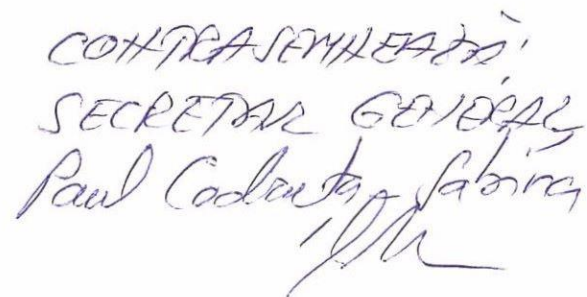 CONTRASEMNEAZĂ:
SECRETAR GENERAL,
Paul Codruța Sabina